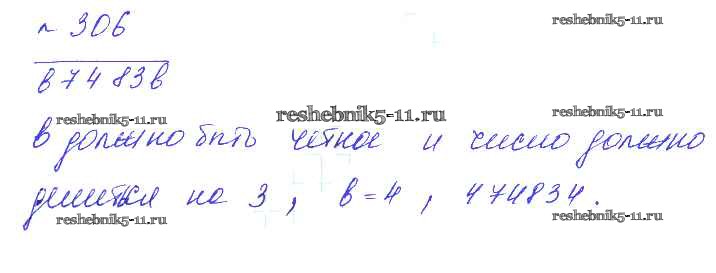 № 306
reshebnik5-11.ru
в7483в
reshebnik5-11.ru reshebnik5-11.ru reshebnik5-11.ru
в должно быть четное и число должно
делиться на 3, в=4, 474834.
reshebnik5-11.ru reshebnik5-11.ru